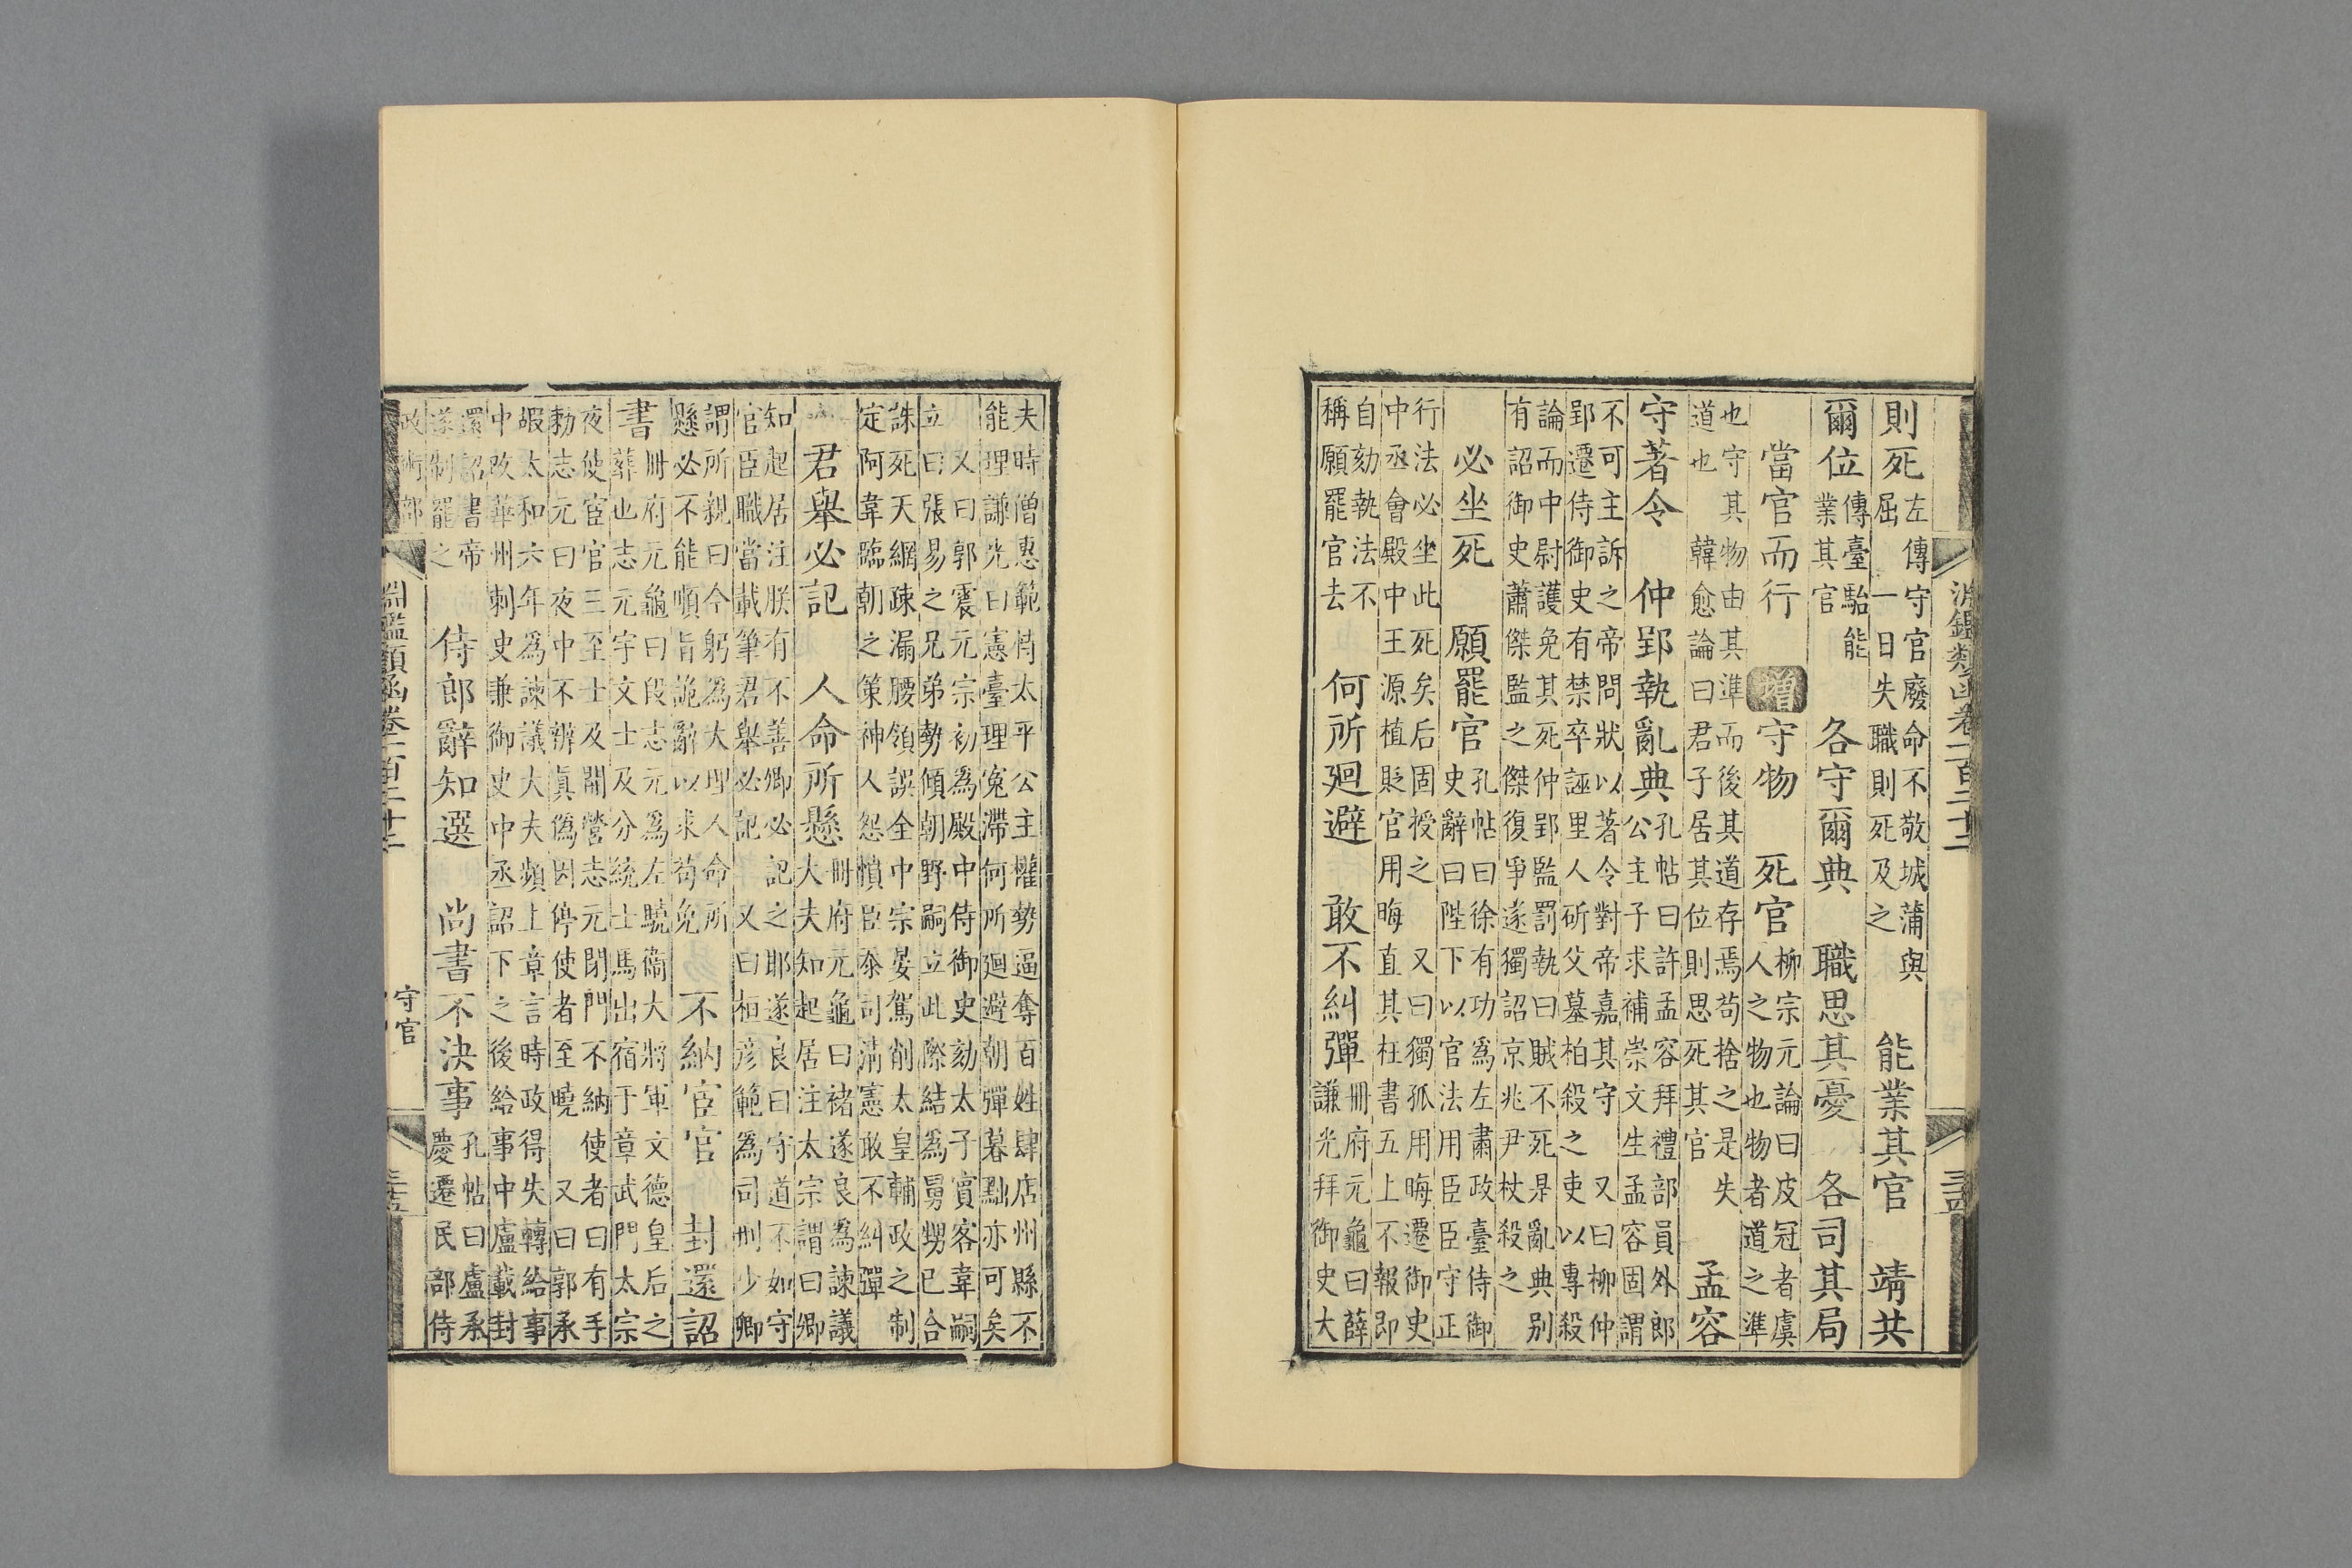 淵鑑類函卷二百二十二
則死左傳守官廢命不敬城蒲與屈一日失職則死及之　能業其官　靖共
爾位傳臺駘能業其官　各守爾典　職思其憂　各司其局
當官而行　增守物　死官柳宗元論曰皮冠者虞人之物也物者道之準
也守其物由其準而後其道存焉苟捨之是失道也　韓愈論曰君子居其位則思死其官　孟容
守著令　仲郢執亂典孔帖曰許孟容拜禮部員外郎公主子求補崇文生孟容固謂
不可主訴之帝問狀以著令對帝嘉其守　又曰柳仲郢遷侍御史有禁卒誣里人斫父墓柏殺之吏以專殺
論而中尉護免其死仲郢監罰執曰賊不死是亂典别有詔御史蕭傑監之傑復爭遂獨詔京兆尹杖殺之
必坐死　願罷官孔帖曰徐有功為左肅政臺侍御史辭曰陛下以官法用臣臣守正
行法必坐此死矣后固授之　又曰獨孤用晦遷御史中丞會殿中王源植貶官用晦直其枉書五上不報即
自劾執法不稱願罷官去　何所廻避　敢不糾彈冊府元龜曰薛謙光拜御史大
夫時僧惠範恃太平公主權勢逼奪百姓肆店州縣不能理謙光曰憲臺理寃滯何所廻避朝彈暮黜亦可矣
又曰郭震元宗初為殿中侍御史劾太子賓客韋嗣立曰張易之兄弟勢傾朝野嗣立此際結為舅甥已合
誅死天網疎漏腰領誤全中宗晏駕削太皇輔政之制定阿韋臨朝之策神人怨憤臣忝司清憲敢不糾彈
君舉必記　人命所懸冊府元龜曰褚遂良為諫議大夫知起居注太宗謂曰卿
知起居注朕有不善卿必記之耶遂良曰守道不如守官臣職當載筆君舉必記　又曰桓彦範為司刑少卿
謂所親曰今躬為大理人命所懸必不能順旨詭辭以求苟免　不納宦官　封還詔
書冊府元龜曰段志元為左驍衛大將軍文德皇后之葬也志元宇文士及分統士馬出宿于章武門太宗
夜使宦官三至士及開營志元閉門不納使者曰有手勅志元曰夜中不辨真僞因停使者至曉　又曰郭承
嘏太和六年為諫議大夫頻上章言時政得失轉給事中改華州刺史兼御史中丞詔下之後給事中盧載封
還詔書帝遂制罷之　侍郎辭知選　尚書不決事孔帖曰盧承慶遷民部侍
政術部　淵鑑類函卷二百二十二　守官